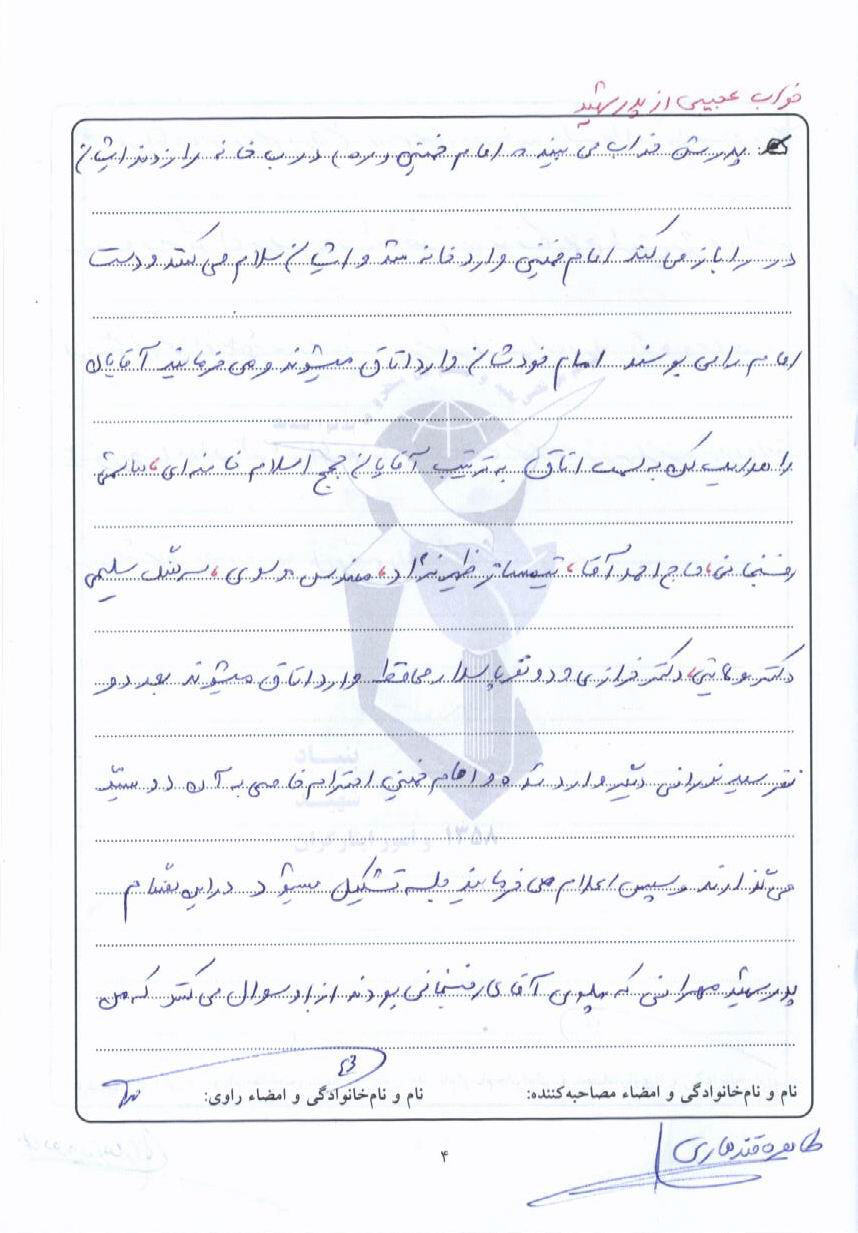 خواب عجیبی از پدر شهید
پدرش خواب می بیند که امام خمینی (ره) درب خانه را زدند ایشان
در را باز می کند امام خمینی وارد خانه شد و ایشان سلام می کنند و دست
امام را می بوسند امام خودشان وارد اتاق میشوند و می فرمایند آقایان
را هدایت کن به سمت اتاق به ترتیب آقایان حجج اسلام خامنه ای، هاشمی
رفسنجانی، حاج احمد آقا، تیمسار ظهیرنژاد، مهندس موسوی، سرهنگ سلیمی
دکتر ولایتی، دکتر خرازی و دو نفر پاسدار محافظ وارد اتاق میشوند بعد دو
نفر سید نورانی دیگر وارد شده و امام خمینی احترام خاصی به آن دو سید
می گذارند و سپس اعلام می فرمایند جلسه تشکیل میشود در این هنگام
پدر شهید مهرانی که پهلوی آقای رفسنجانی بودند از او سوال می کند که من
نام و نام‌خانوادگی و امضاء مصاحبه‌کننده:
نام و نام‌خانوادگی و امضاء راوی:
طاهره قندهاری
۴
بنیاد
شهید
و امور ایثارگران
۱۳۵۸